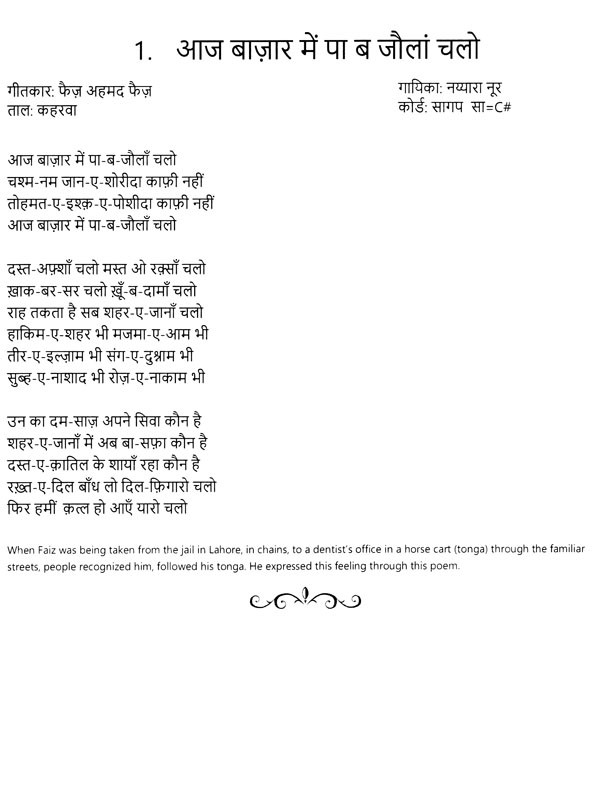 1. आज बाज़ार में पा ब जौलां चलो
गीतकार: फैज़ अहमद फैज़
गायिका: नय्यारा नूर
ताल: कहरवा
कोर्ड: सागप सा=C#
आज बाज़ार में पा-ब-जौलाँ चलो
चश्म-नम जान-ए-शोरीदा काफ़ी नहीं
तोहमत-ए-इश्क़-ए-पोशीदा काफ़ी नहीं
आज बाज़ार में पा-ब-जौलाँ चलो
दस्त-अफ़्शाँ चलो मस्त ओ रक़्साँ चलो
ख़ाक-बर-सर चलो ख़ूँ-ब-दामाँ चलो
राह तकता है सब शहर-ए-जानाँ चलो
हाकिम-ए-शहर भी मजमा-ए-आम भी
तीर-ए-इल्ज़ाम भी संग-ए-दुश्नाम भी
सुब्ह-ए-नाशाद भी रोज़-ए-नाकाम भी
उन का दम-साज़ अपने सिवा कौन है
शहर-ए-जानाँ में अब बा-सफ़ा कौन है
दस्त-ए-क़ातिल के शायाँ रहा कौन है
रख़्त-ए-दिल बाँध लो दिल-फ़िगारो चलो
फिर हमीं क़त्ल हो आएँ यारो चलो
When Faiz was being taken from the jail in Lahore, in chains, to a dentist's office in a horse cart (tonga) through the familiar
streets, people recognized him, followed his tonga. He expressed this feeling through this poem.